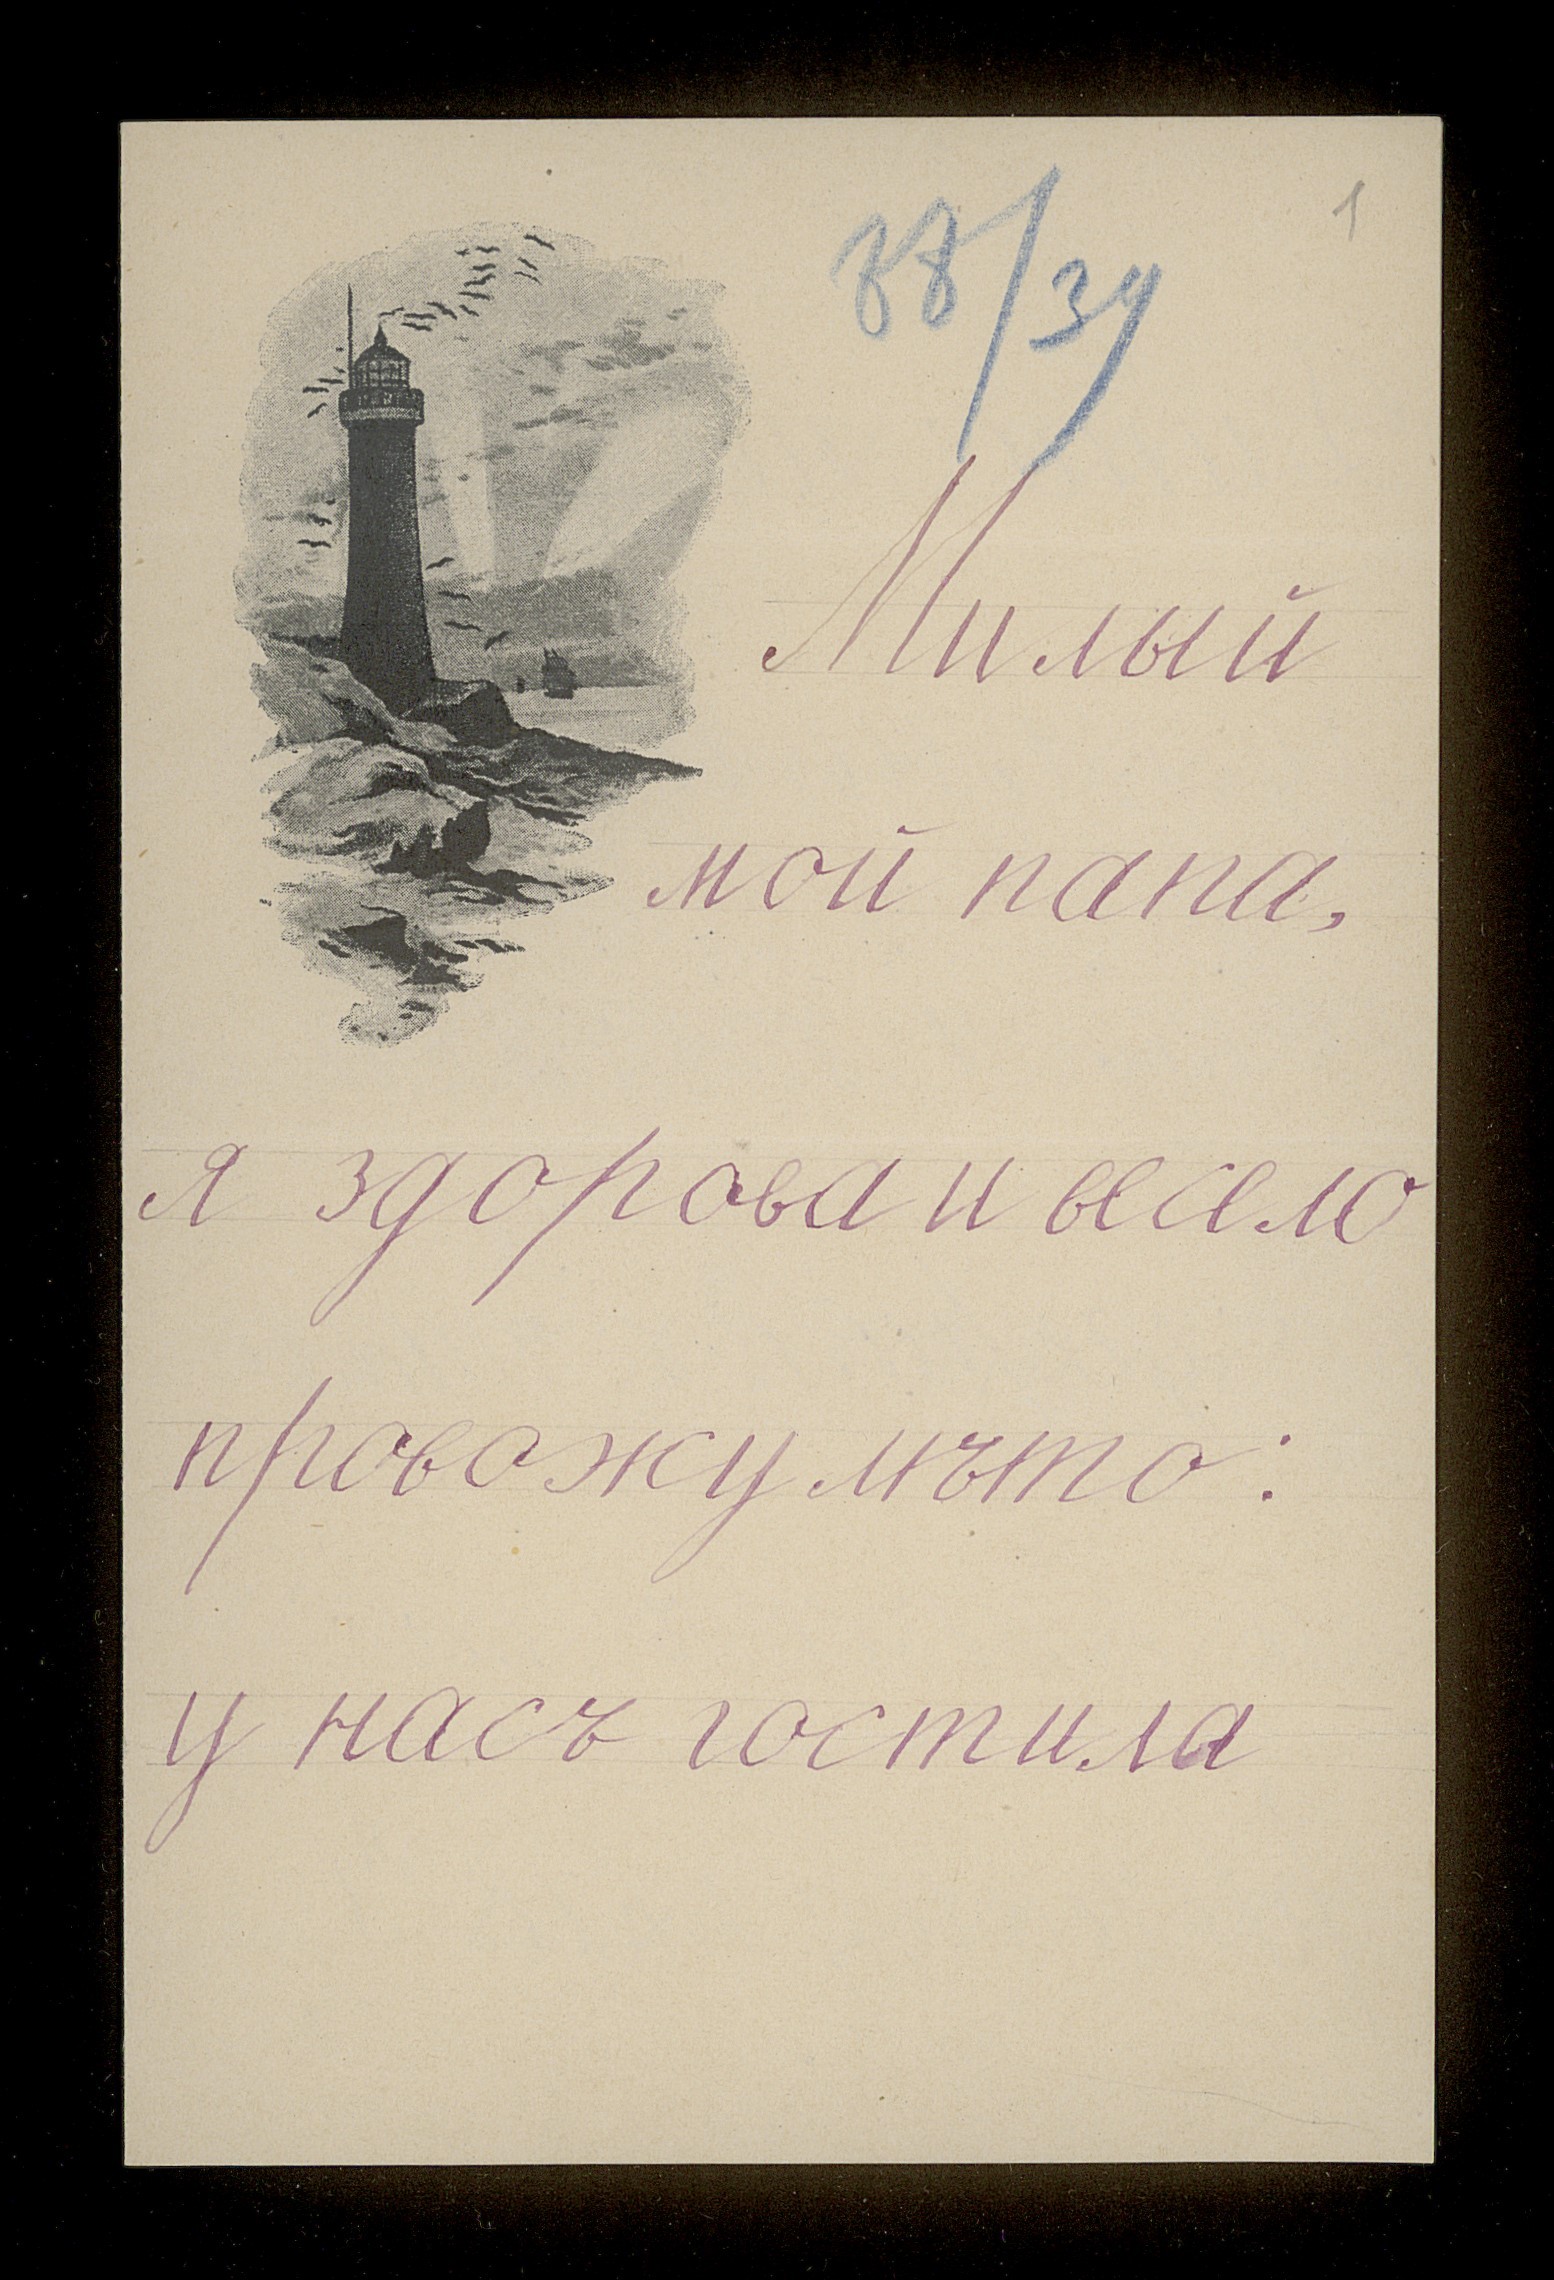 1
88/34
Милый
мой папа,
я здорова и весело
провожу лѣто:
у насъ гостила